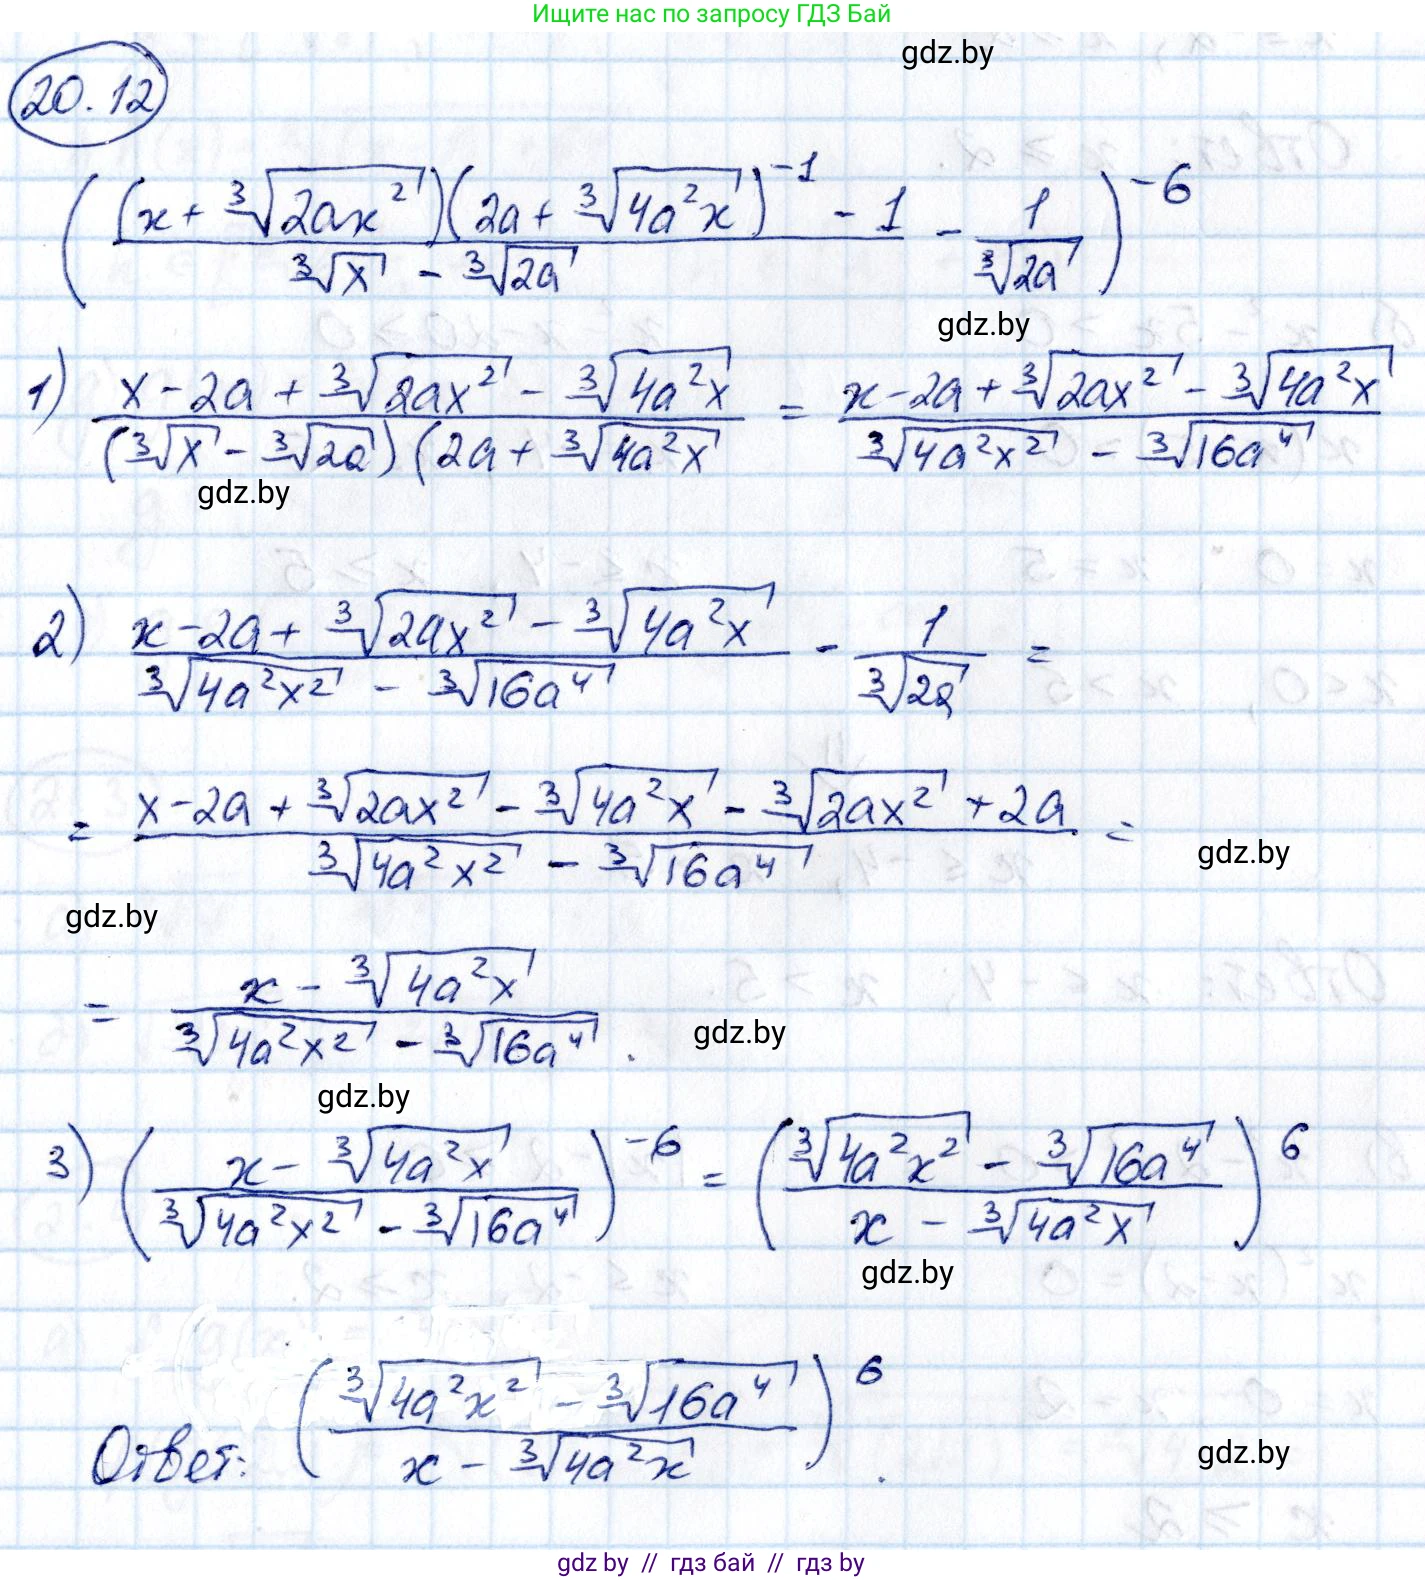 Ищите нас по запросу ГДЗ Бай
gdz.by
20.12
(((x + ∛(2ax²))(2a + ∛(4a²x))⁻¹ - 1)/(∛x - ∛(2a)) - 1/∛(2a))⁻⁶
gdz.by
1) (x - 2a + ∛(2ax²) - ∛(4a²x))/((∛x - ∛(2a))(2a + ∛(4a²x)) = (x - 2a + ∛(2ax²) - ∛(4a²x))/(∛(4a²x²) - ∛(16a⁴))
gdz.by
2) (x - 2a + ∛(2ax²) - ∛(4a²x))/(∛(4a²x²) - ∛(16a⁴)) - 1/∛(2a) =
= (x - 2a + ∛(2ax²) - ∛(4a²x) - ∛(2ax²) + 2a)/(∛(4a²x²) - ∛(16a⁴)) =
gdz.by
gdz.by
= (x - ∛(4a²x))/(∛(4a²x²) - ∛(16a⁴)).
gdz.by
gdz.by
3) ((x - ∛(4a²x))/(∛(4a²x²) - ∛(16a⁴)))⁻⁶ = ((∛(4a²x²) - ∛(16a⁴))/(x - ∛(4a²x)))⁶
gdz.by
Ответ: ((∛(4a²x²) - ∛(16a⁴))/(x - ∛(4a²x)))⁶.
gdz.by
gdz by // гдз бай // гдз by